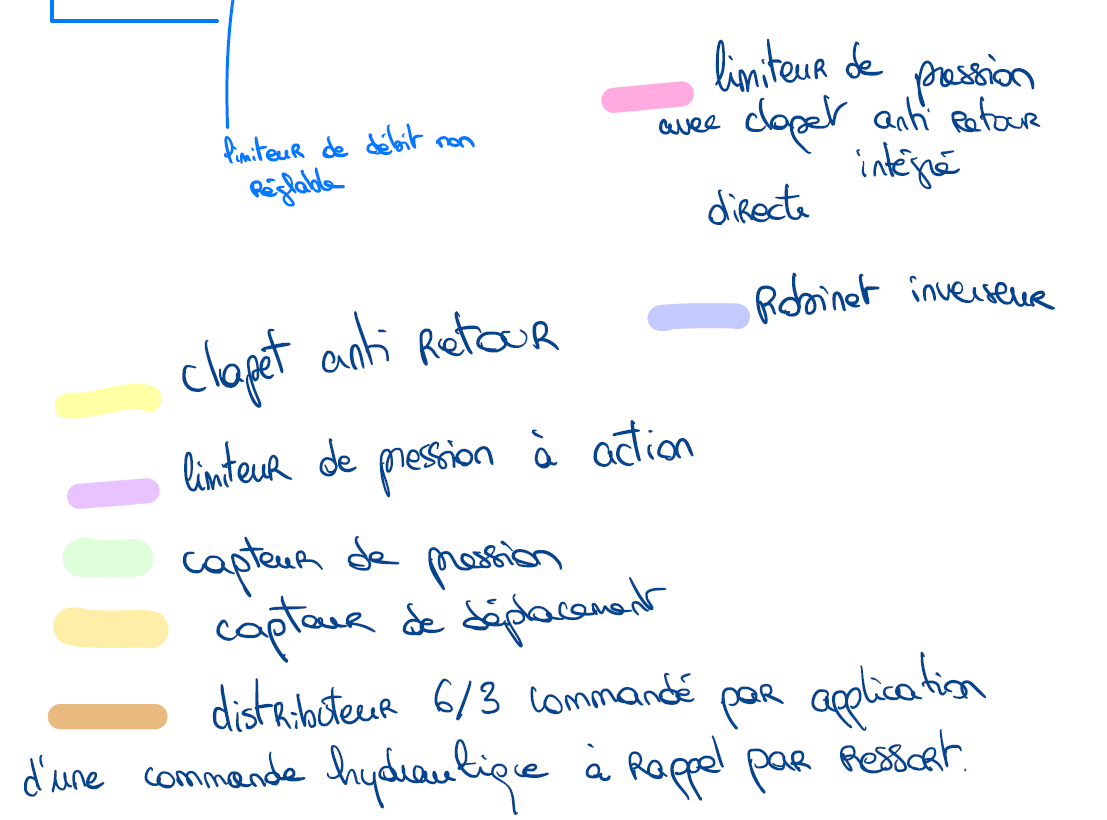 limiteur de débit non
réglable
limiteur de pression
avec clapet anti retour
intégré
directe
Robinet inverseur
clapet anti retour
limiteur de pression à action
capteur de pression
capteur de déplacement
distributeur 6/3 commandé par application
d'une commande hydraulique à rappel par ressort.